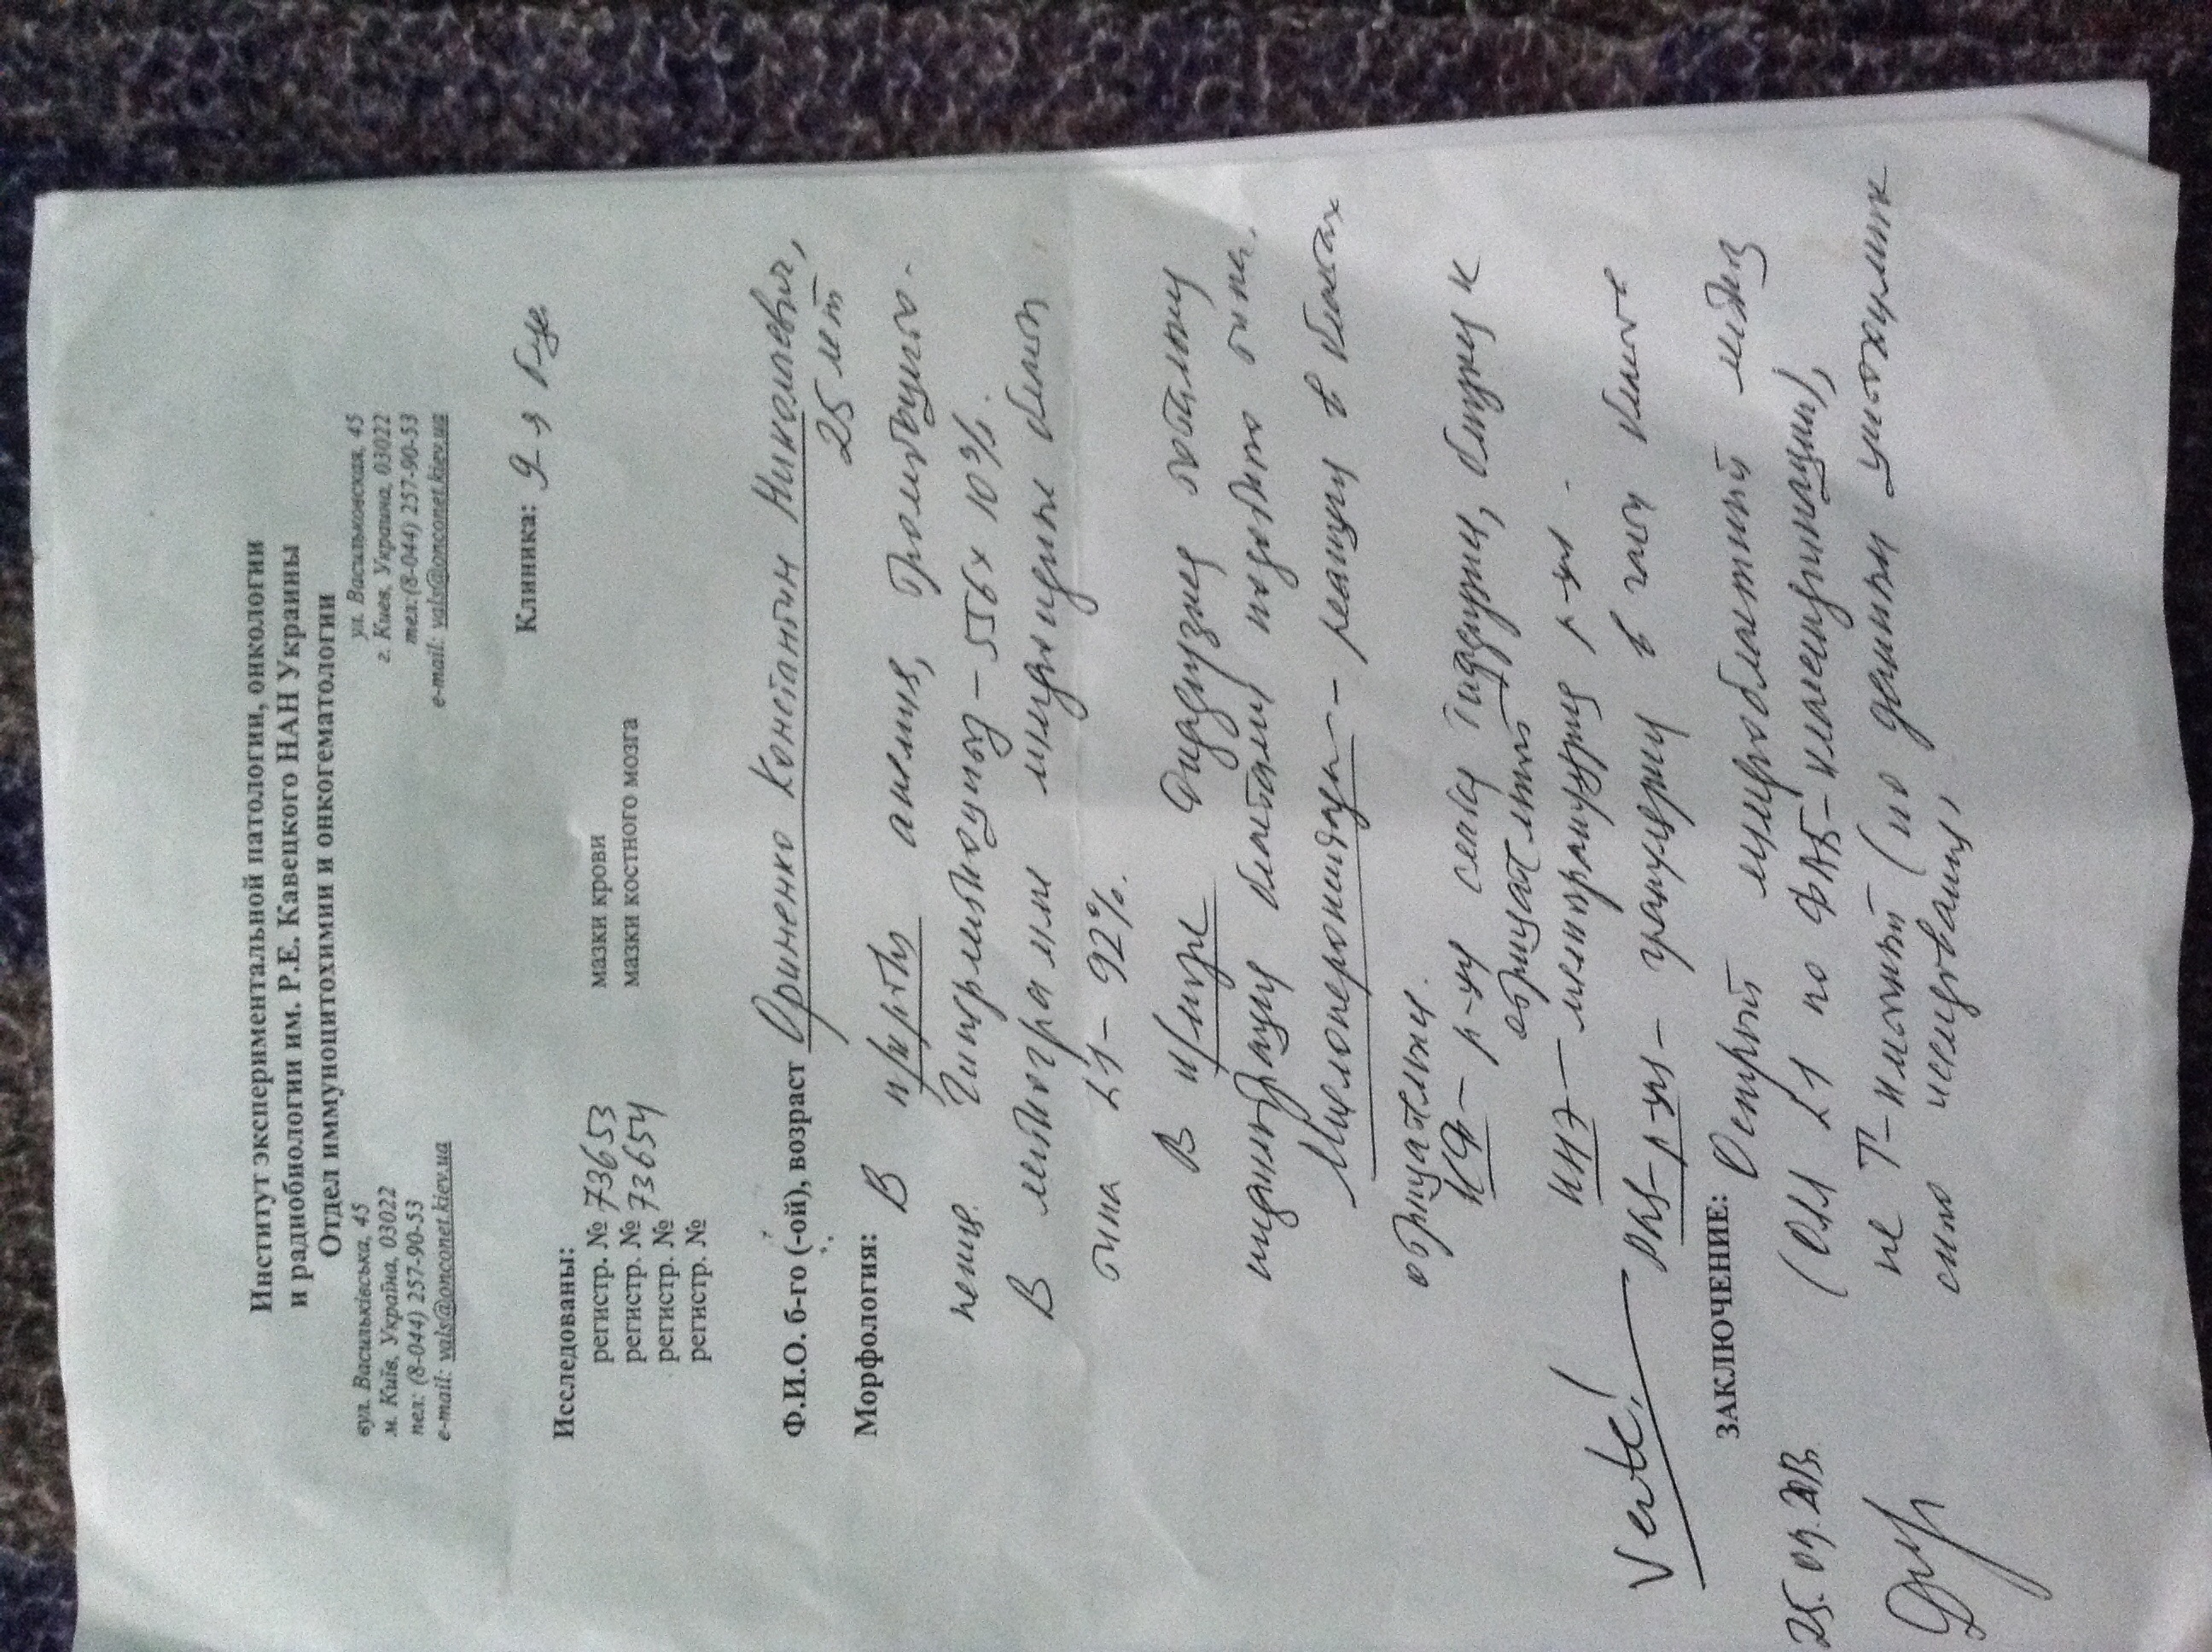 Институт экспериментальной патологии, онкологии
и радиобиологии им. Р.Е. Кавецкого НАН Украины
Отдел иммуноцитохимии и онкогематологии
вул. Васильківська, 45
м. Київ, Україна, 03022
тел: (8-044) 257-90-53
e-mail: vals@onconet.kiev.ua
ул. Васильковская, 45
г. Киев, Украина, 03022
тел:(8-044) 257-90-53
e-mail: vals@onconet.kiev.ua
Клиника: 9-я
Исследованы:
регистр. № 73653 мазки крови
регистр. № 73654 мазки костного мозга
регистр. №
регистр. №
Ф.И.О. б-го (-ой), возраст Константин Николаевич,
25 лет
Морфология: В анемия, Тромбоцито-
пения. Гиперлейкоцитоз – 556 х 10⁹/л.
В лейкограмме лимфоидные бласты
типа L1 – 92%.
В диффузная тотальная
инфильтрация бластами подобного типа.
Миелопероксидаза – реакция в бластах
отрицательна.
КФ – р-ция
отрицательной
НАЭ – р-ция.
PAS-р-ция – гранулярная в части бластов
Verte!
ЗАКЛЮЧЕНИЕ: Острый лимфобластный лейкоз
(ОЛЛ L1 по ФАБ-классификации),
не Т-клеточный (по данным цитохимичес-
ких исследований)
25.09.